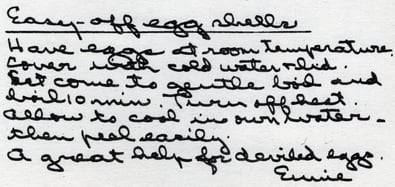 Easy-off egg shells
Have eggs at room temperature.
Cover with cold water & lid.
Let come to gentle boil and
boil 10 min. Turn off heat.
Allow to cool in own water -
then peel easily.
A great help for deviled eggs.
Ernie